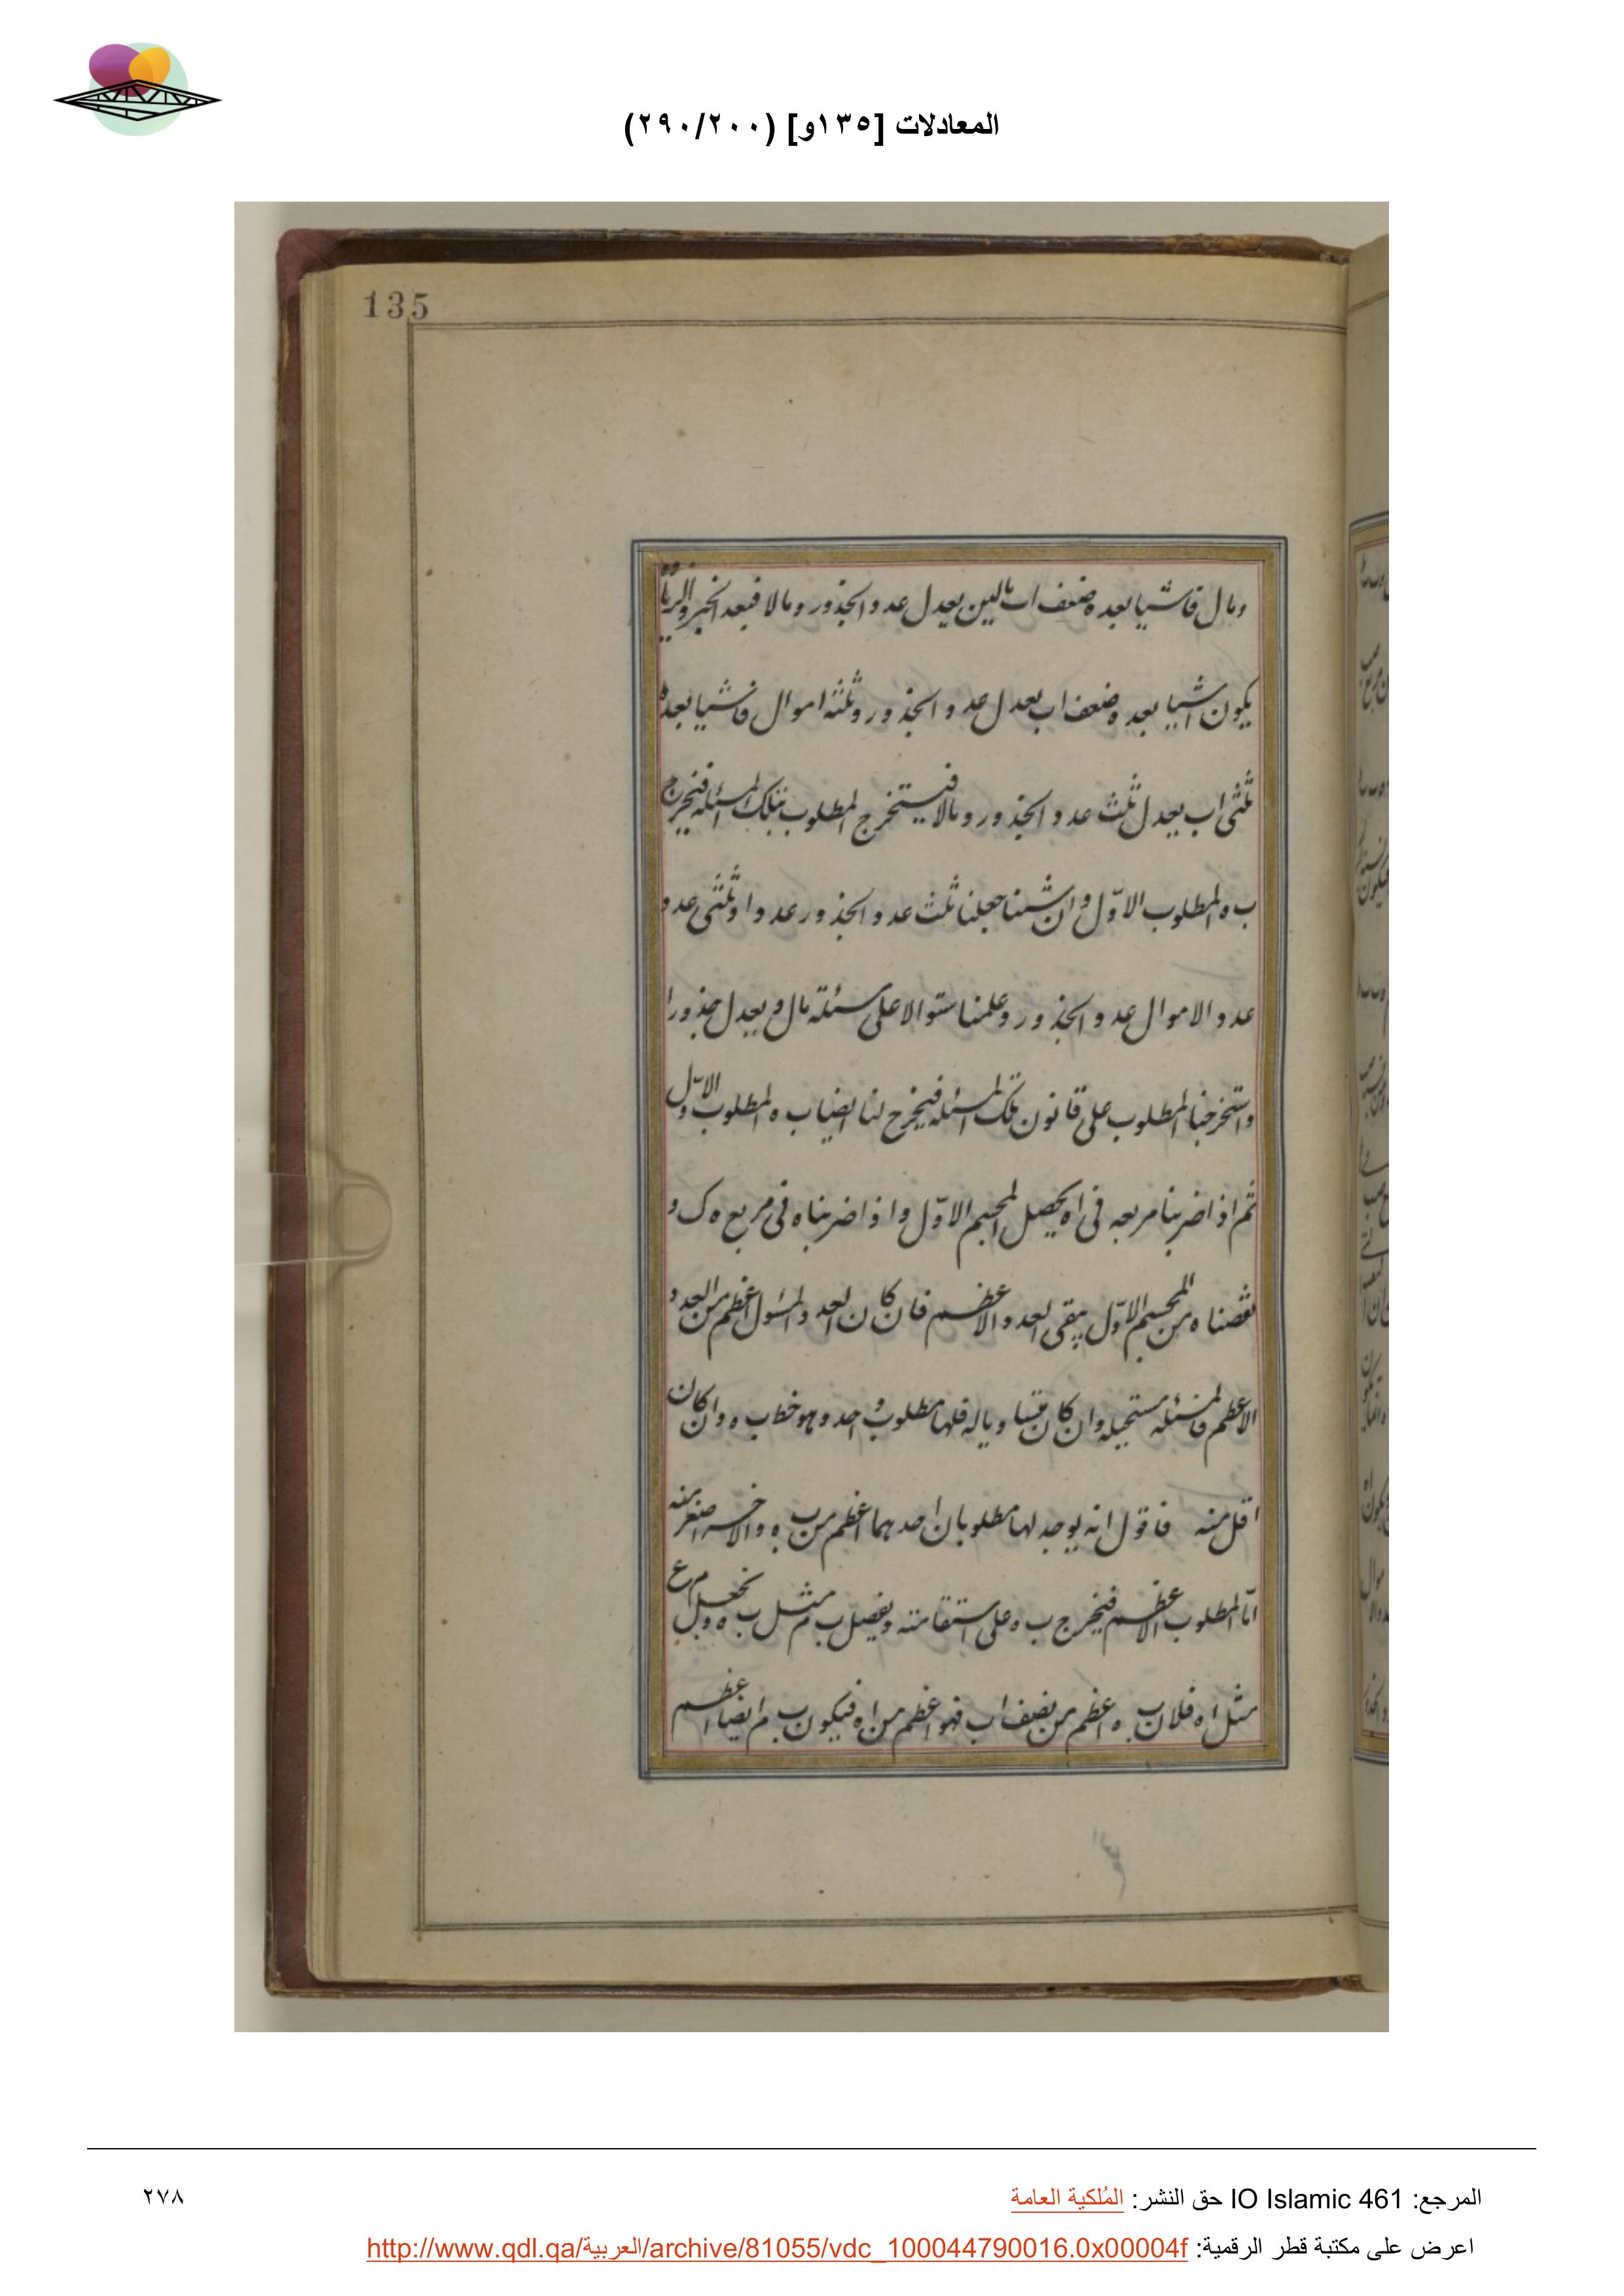 المعادلات [١٣٥و] (٢٩٠/٢٠٠)
135
ومال فاشيا بعده ضعف اب مالين يعدل عدد الجذور ومالا فبعد الجبر والزيادة
يكون اشيا بعده ضعف اب يعدل عدد الجذور وثلثة اموال فاشيا بعده
ثلثى اب يعدل ثلث عدد الجذور ومالا فيستخرج المطلوب بتلك المسئلة فيخرج
ب ه المطلوب الاول وان شئنا جعلنا ثلث عدد الجذور عددا وثلثى عدد
عدد الاموال عدد الجذور وعلمنا سئوالا على مسئلة مال و يعدل جذورا
واستخرجنا المطلوب على قانون تلك المسئلة فيخرج لنا ايضا ب ه المطلوب الاول
ثم اذا ضربنا مربعه فى اه يحصل المجسم الاول واذا ضربناه فى مربع ه ك و
نقصناه من المجسم الاول يبقى العدد الاعظم فان كان العدد المسئول اعظم من العدد
الاعظم فالمسئلة مستحيلة وان كان متساويا له فلها مطلوب واحد وهو خط ب ه وان كان
اقل منه فاقول انه يوجد لها مطلوبان احدهما اعظم من ب ه والاخر اصغر منه
اما المطلوب الاعظم فيخرج ب ه على استقامته ويفصل ب م مثل ب ه ونجعل م ع
مثل اه فلان ب ه اعظم من نصف اب فهو اعظم من اه فيكون ب م ايضا اعظم
المرجع: IO Islamic 461 حق النشر: المُلكية العامة
٢٧٨
اعرض على مكتبة قطر الرقمية: http://www.qdl.qa/العربية/archive/81055/vdc_100044790016.0x00004f